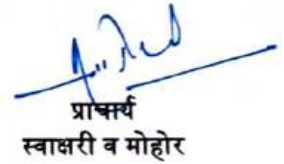 प्राचार्य
स्वाक्षरी व मोहोर